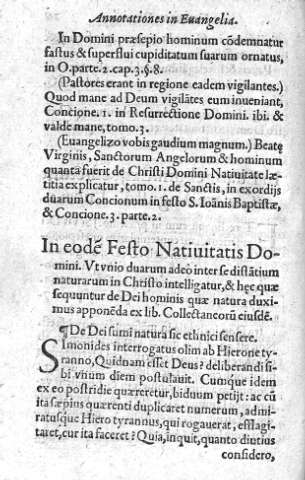 Annotationes in Euangelia.
In Domini præsepio hominum cõdemnatur
fastus & superflui cupiditatum suarum ornatus,
in O.parte.2.cap.3.§.8.
(Pastores erant in regione eadem vigilantes.)
Quod mane ad Deum vigilãtes eum inueniant,
Concione.1. in Resurrectione Domini. ibi. &
valde mane, tomo.3.
(Euangelizo vobis gaudium magnum.) Beatę
Virginis, Sanctorum Angelorum & hominum
quanta fuerit de Christi Domini Natiuitate læ-
titia explicatur, tomo.1. de Sanctis, in exordijs
duarum Concionum in festo S. Ioãnis Baptistæ,
& Concione.3. parte.2.
In eodẽ Festo Natiuitatis Do-
mini. Vt vnio duarum adeo inter se distãtium
naturarum in Christo intelligatur, & hęc quæ
sequuntur de Dei hominis quæ natura duxi-
mus apponẽda ex lib. Collectaneorũ eiusdẽ.
¶ De Dei sumi natura sic ethnici sensere.
Simonides interrogatus olim ab Hierone ty-
ranno, Quidnam esset Deus? deliberandi si-
bi vnum diem postulauit. Cumque idem
ex eo postridie quæreretur, biduum petijt: ac cũ
ita sæpius quærenti duplicaret numerum, admi-
ratusque Hiero tyrannus, qui rogauerat, efflagi-
taret, cur ita faceret? Quia, inquit, quanto diutius
considero,